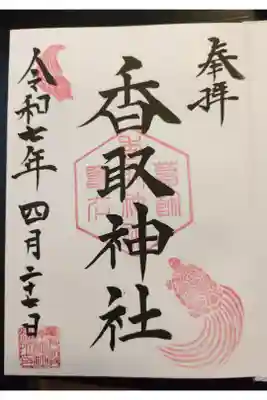 奉拝
香取神社
令和七年四月二十七日